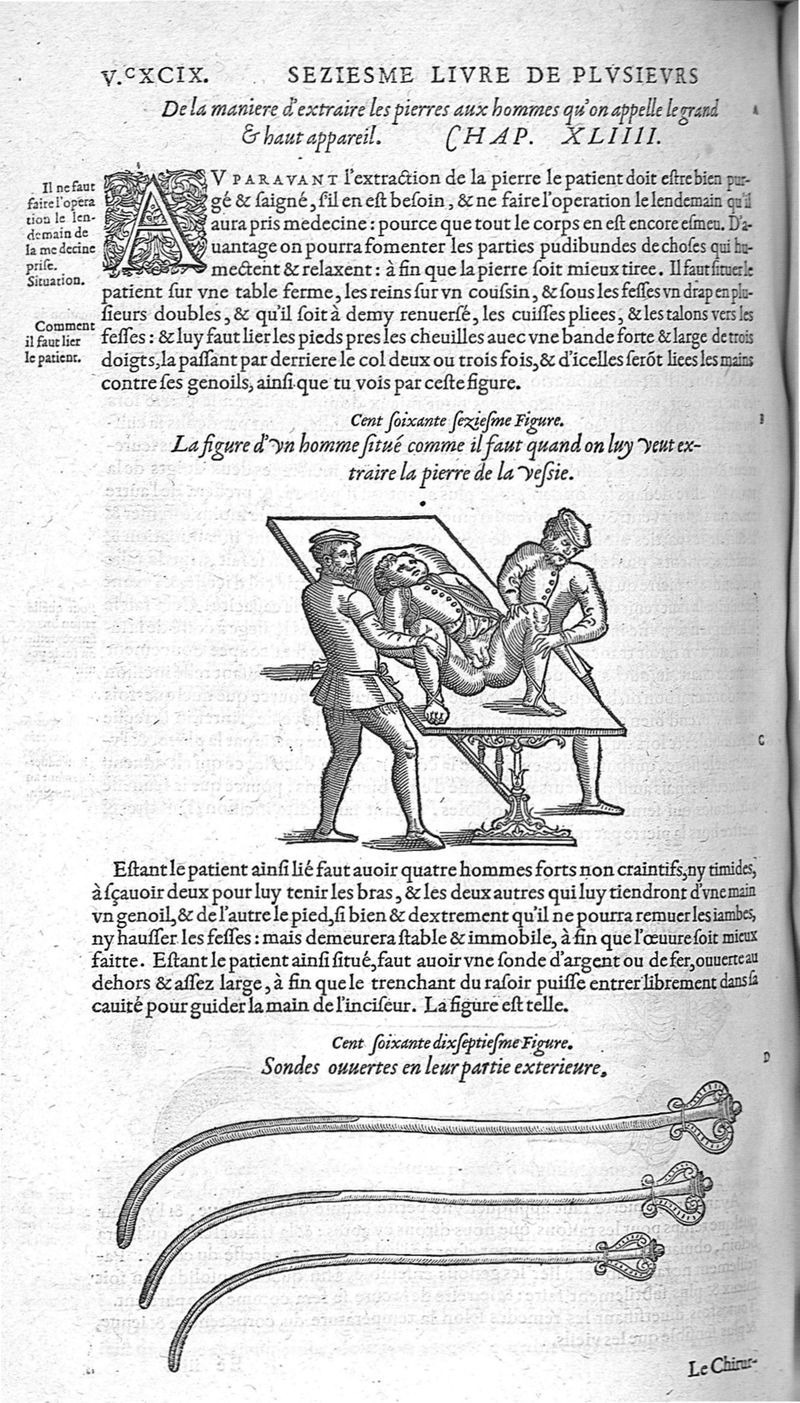 V.ᶜXCIX. SEZIESME LIVRE DE PLVSIEVRS
De la maniere d'extraire les pierres aux hommes qu'on appelle le grand
& haut appareil. CHAP. XLIIII.
A
Il ne faut
faire l'opera
tion le len-
demain de
la medecine
prise.
Situation.
Comment
il faut lier
le patient.
AV PARAVANT l'extraction de la pierre le patient doit estre bien pur-
gé & saigné, s'il en est besoin, & ne faire l'operation le lendemain qu'il
aura pris medecine: pource que tout le corps en est encore esmeu. D'a-
uantage on pourra fomenter les parties pudibundes de choses qui hu-
mectent & relaxent: à fin que la pierre soit mieux tiree. Il faut situer le
patient sur vne table ferme, les reins sur vn coussin, & sous les fesses vn drap en plu-
sieurs doubles, & qu'il soit à demy renuersé, les cuisses pliees, & les talons vers les
fesses: & luy faut lier les pieds pres les cheuilles auec vne bande forte & large de trois
doigts, la passant par derriere le col deux ou trois fois, & d'icelles serõt liees les mains
contre ses genoils, ainsi que tu vois par ceste figure.
Cent soixante seziesme Figure.
La figure d'vn homme situé comme il faut quand on luy veut ex-
traire la pierre de la vessie.
C
Estant le patient ainsi lié faut auoir quatre hommes forts non craintifs, ny timides,
à sçauoir deux pour luy tenir les bras, & les deux autres qui luy tiendront d'vne main
vn genoil, & de l'autre le pied, si bien & dextrement qu'il ne pourra remuer les iambes,
ny hausser les fesses: mais demeurera stable & immobile, à fin que l'œuure soit mieux
faitte. Estant le patient ainsi situé, faut auoir vne sonde d'argent ou de fer, ouuerte au
dehors & assez large, à fin que le trenchant du rasoir puisse entrer librement dans sa
cauité pour guider la main de l'inciseur. La figure est telle.
Cent soixante dixseptiesme Figure.
D
Sondes ouuertes en leur partie exterieure.
Le Chirur-